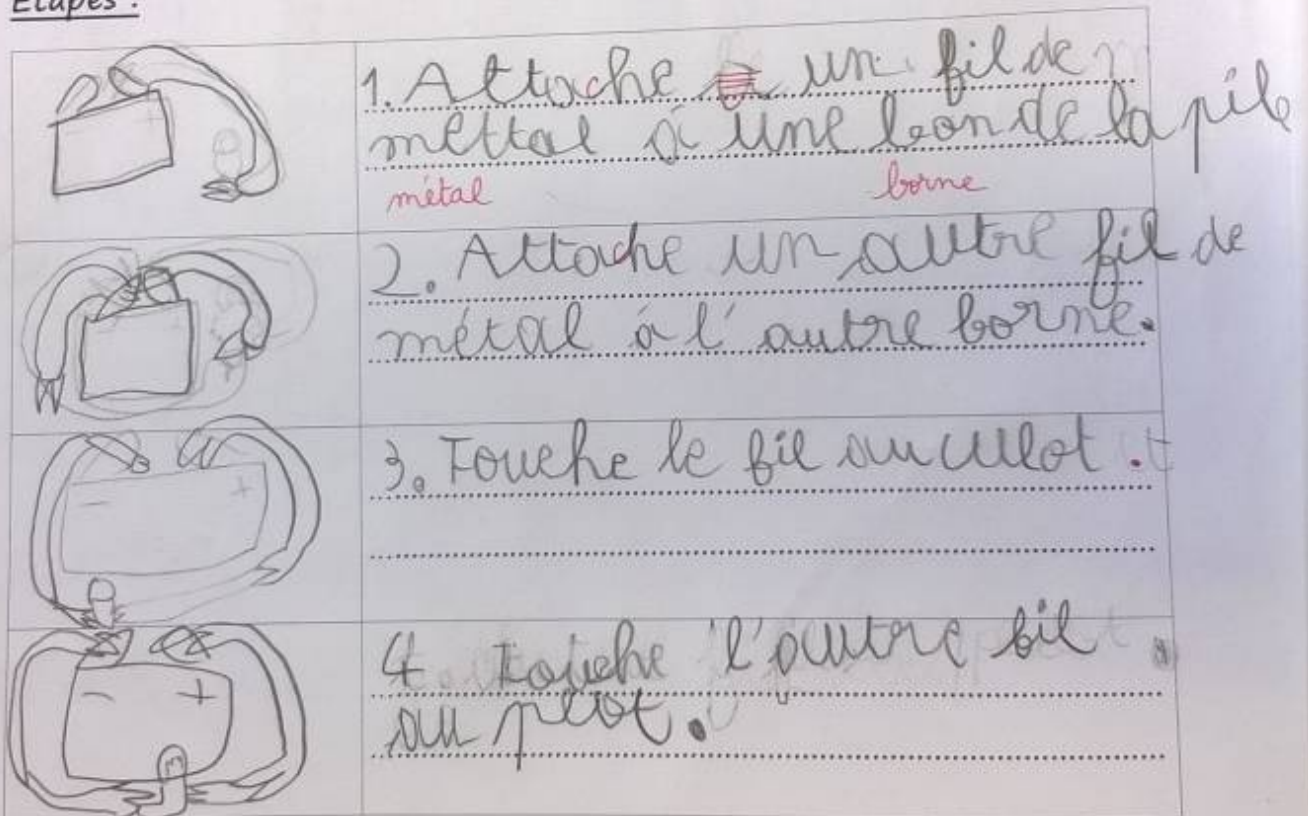 Etapes :
1. Attache un fil de
mettal à une bon de la pile
métal borne
2. Attache un autre fil de
métal à l'autre borne.
3. Touche le fil au culot.
- +
4. touche l'autre fil
au plot.
- +